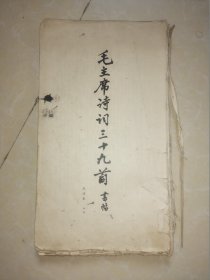 毛主席诗词三十九首 书帖